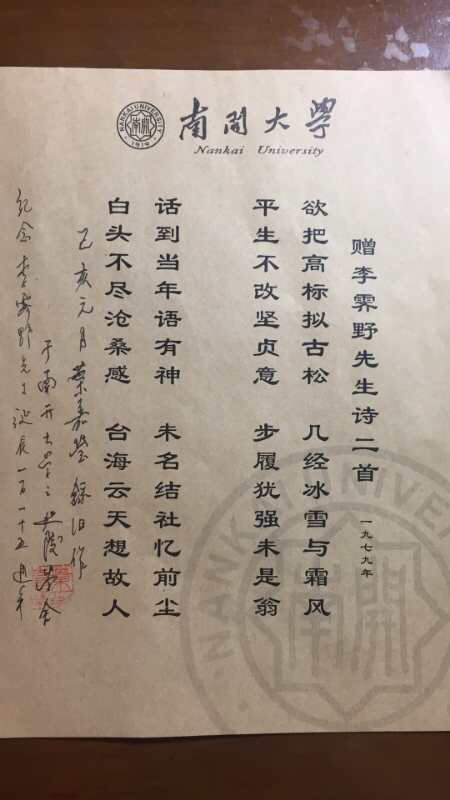 NANKAI UNIVERSITY
南開
1919
南開大學
Nankai University
赠李霁野先生诗二首 一九七九年
欲把高标拟古松 几经冰雪与霜风
平生不改坚贞意 步履犹强未是翁
话到当年语有神 未名结社忆前尘
白头不尽沧桑感 台海云天想故人
己亥元月葉嘉瑩録旧作
于南开大学之迦陵学舍
纪念李霁野先生诞辰一百一十五週年